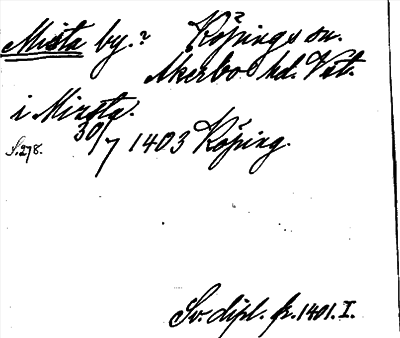 Mista by.? Köpings sn.
Åkerbo hd. Vstm.
i Minsta.
30/7 1403 Köping.
S. 278.
Sv. dipl. fr. 1401. I.